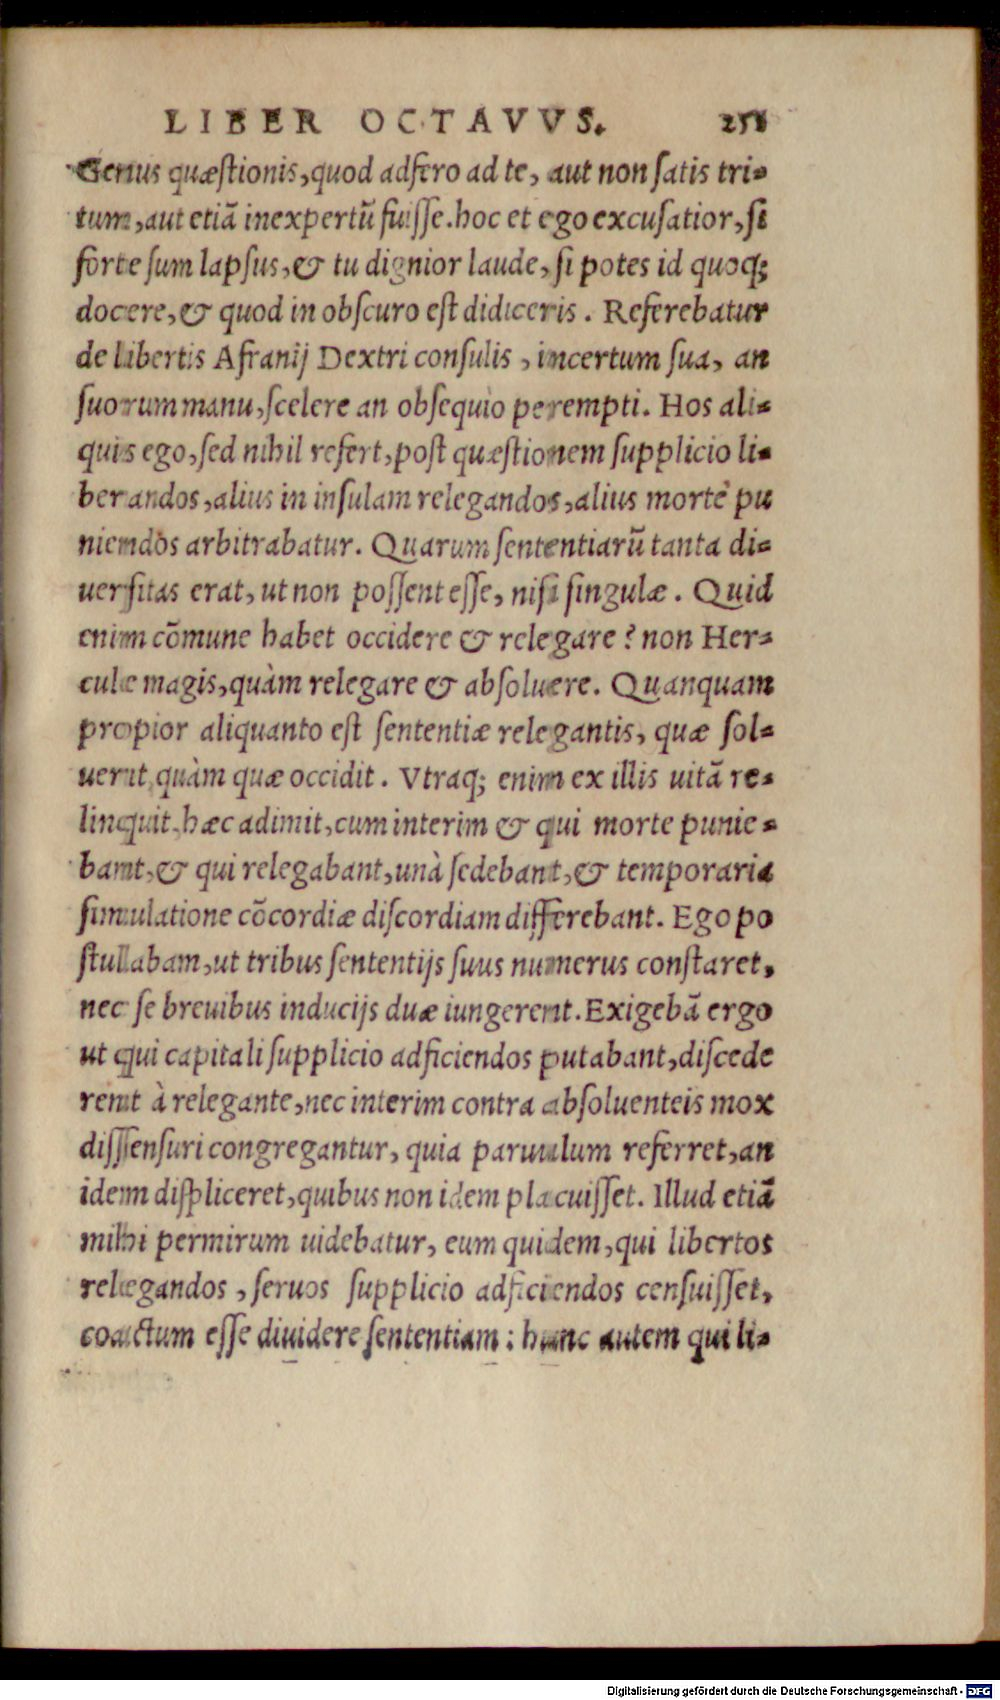 LIBER OCTAVVS. 251
Genus quæstionis, quod adfero ad te, aut non satis tri-
tum, aut etiā inexpertū fuisse. hoc et ego excusatior, si
forte sum lapsus, & tu dignior laude, si potes id quoq;
docere, & quod in obscuro est didiceris. Referebatur
de libertis Afranij Dextri consulis, incertum sua, an
suorum manu, scelere an obsequio perempti. Hos ali-
quis ego, sed nihil refert, post quæstionem supplicio li-
berandos, alius in insulam relegandos, alius mortē pu
niendos arbitrabatur. Quarum sententiarū tanta di-
uersitas erat, ut non possent esse, nisi singulæ. Quid
enim cōmune habet occidere & relegare? non Her-
cule magis, quàm relegare & absoluere. Quanquam
propior aliquanto est sententiæ relegantis, quæ sol-
uerit, quàm quæ occidit. Vtraq; enim ex illis uitā re-
linquit, hæc adimit, cum interim & qui morte punie-
bant, & qui relegabant, unà sedebant, & temporaria
simulatione cōcordiæ discordiam differebant. Ego po
stulabam, ut tribus sententijs suus numerus constaret,
nec se breuibus inducijs duæ iungerent. Exigebā ergo
ut qui capitali supplicio adficiendos putabant, discede
rent à relegante, nec interim contra absoluenteis mox
dissensuri congregantur, quia paruulum referret, an
idem displiceret, quibus non idem placuisset. Illud etiā
mihi permirum uidebatur, eum quidem, qui libertos
relegandos, seruos supplicio adficiendos censuisset,
coactum esse diuidere sententiam: hunc autem qui li-
Digitalisierung gefördert durch die Deutsche Forschungsgemeinschaft - DFG